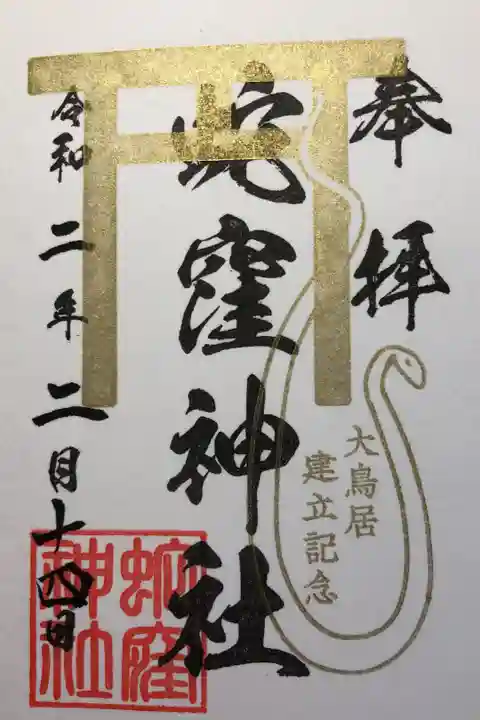 奉拝
蛇窪神社
大鳥居
建立記念
令和二年二月十四日
蛇窪
神社